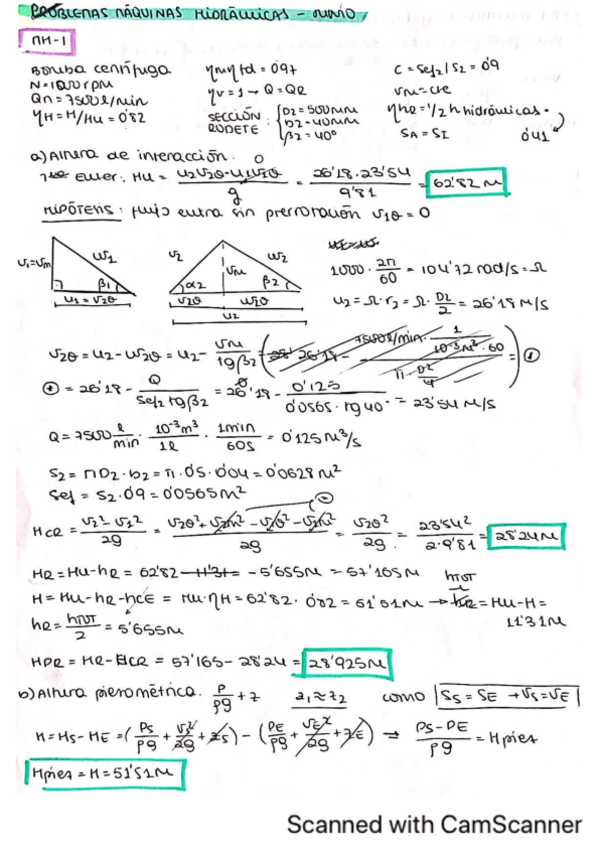 PROBLEMAS MÁQUINAS HIDRÁULICAS - JUNIO
MH-1
Bomba centrífuga
N=1000rpm
Qn=7500 l/min
ηH=H/Hu=0'82
ηmηtd=0'97
ηv=1→Q=QR
SECCIÓN RODETE: D2=500mm
b2=40mm
β2=40º
C=Sef2/S2=0'9
vm=cte
ηhR=1/2 h hidráulicas.
SA=SI
0'41
a) Altura de interacción: 0
Euler: Hu = u2v2θ-u1v1θ / g = 26'18·23'54 / 9'81 = 62'82 m
HIPÓTESIS: flujo entra sin prerrotación v1θ=0
v1=vm w1 β1
v2 vm w2 α2 β2
v2θ w2θ
u2
1000·2π/60 = 104'72 rad/s = Ω
u2=Ω·r2=Ω·D2/2=26'18 m/s
v2θ=u2-w2θ=u2- vm/tgβ2
= 26'18- Q/Sef2 tgβ2 = 26'18- 0'125/0'0565·tg40 = 23'54 m/s
Q=7500 l/min · 10⁻³m³/1l · 1min/60s = 0'125 m³/s
S2=πD2·b2=π·0'5·0'04=0'0628m²
Sef=S2·0'9=0'0565m²
HCR = v2²-v1² / 2g = v2θ²+v2m²-v1θ²-v1m² / 2g = v2θ²/2g = 23'54²/2·9'81 = 28'24m
HR=Hu-hR=62'82-5'655m=57'165m
H=Hu-hR-hCE=Hu·ηH=62'82·0'82=51'51m → hTOT=Hu-H=
11'31m
hR=hTOT/2=5'655m
HPR=HR-HCR=57'165-28'24=28'925m
b) Altura piezométrica. P/ρg+z z1≈z2 como SS=SE→vS=vE
H=HS-HE=(PS/ρg+vS²/2g+zS)-(PE/ρg+vE²/2g+zE) ⇒ PS-PE/ρg=Hpiez
Hpiez=H=51'51m
Scanned with CamScanner